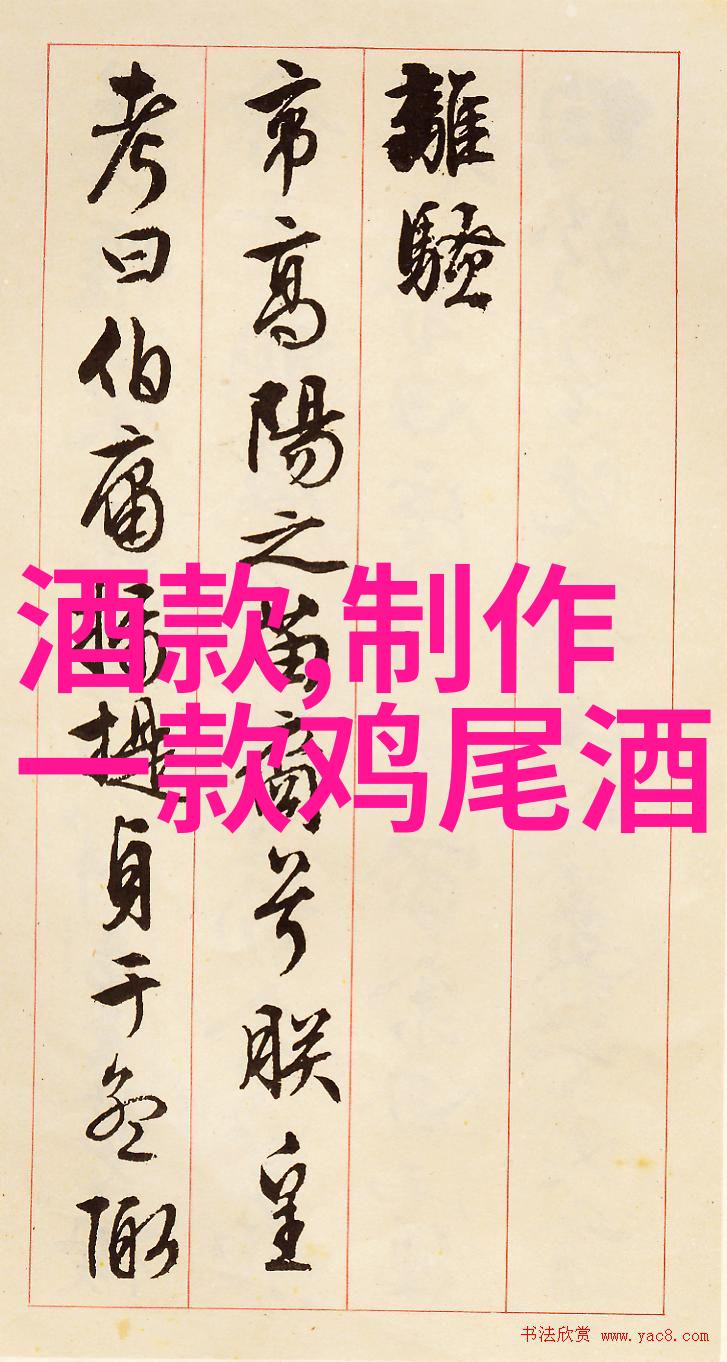 離騷
帝高陽之苗裔兮朕皇
考曰伯庸攝提貞于孟陬
酒款,制作
一款鸡尾酒
书法欣赏 www.yac8.com